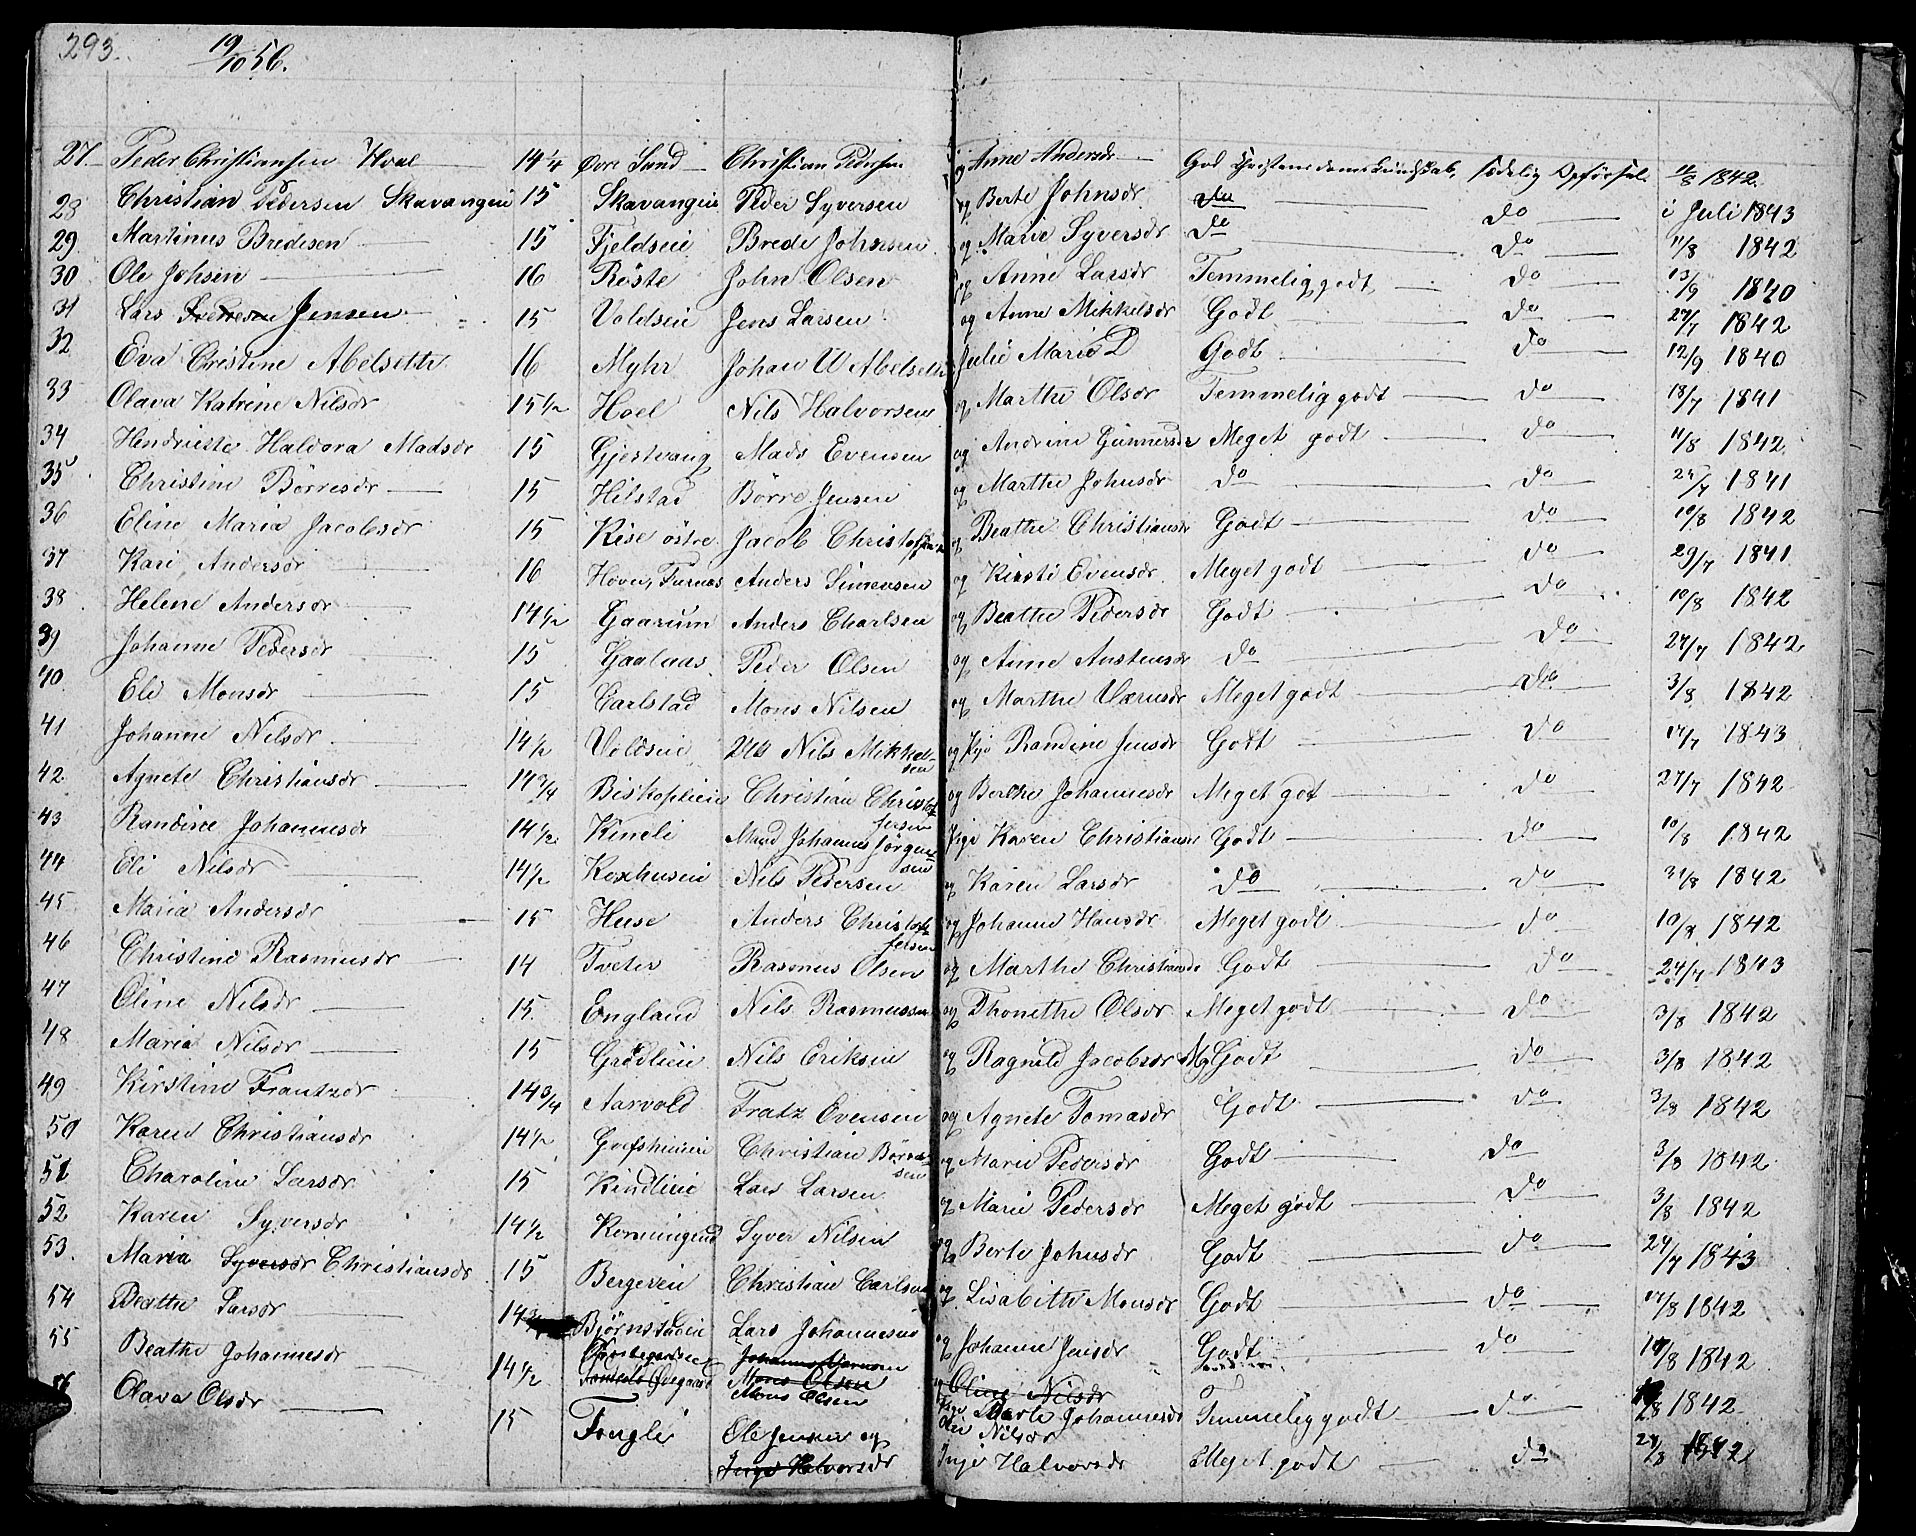 293.
19/10 56.
27. Peder Christiansen Hval 14 1/4 Øvre Sund Christian Pedersen og Anne Andersdr God Christendomskundskab, sædelig Opførsel. 11/8 1842.
28 Christian Pedersen Skavangeie 15 Skavangeie Peder Syversen og Berte Johnsdr do do i Juli 1843
29. Martinus Bredesen 15 Fjeldseie Brede Johnsen og Marie Syversdr do do 11/8 1842
30 Ole Johsen 16 Röste John Olsen og Anne Larsdr Temmelig godt do 13/9 1840
31 Lars Jensen 15 Voldseie Jens Larsen og Anne Mikkelsdr Godt do 27/7 1842
32 Eva Cristine Abelseth 16 Myhr Johan W Abelseth Julie Marie D Godt do 12/9 1840
33 Olava Katrine Nilsdr 15 1/2 Hoel Nils Halvorsen og Marthe Olsdr Temmelig godt do 18/7 1841
34 Hendriette Haldora Madsdr 15 Gjestvang Mads Evensen og Andrine Gunnersdr Meget godt do 11/8 1842
35 Christine Börresdr 15 Hilstad Börre Jensen og Marthe Johnsdr do do 25/7 1841
36 Eline Maria Jacobsdr 15 Kise östre Jacob Christofersen og Beathe Christiansdr Godt do 10/8 1842
37 Kari Andersdr 16 Hoven, Furnæs Anders Simensen og Kirsti Evensdr Meget godt do 29/7 1841
38 Helene Andersdr 14 1/2 Gaarum Anders Charlsen og Beathe Pedersdr Godt do 10/8 1842
39 Johanne Pedersdr 15 Gaalaas Peder Olsen og Anne Austensdr do do 27/7 1842
40. Eli Monsdr 15 Carlstad Mons Nilsen og Marthe Værnsdr Meget godt do 3/8 1842
41 Johanne Nilsdr 14 1/2 Voldseie Nils Mikkelsen og Pige Randine Jensdr Godt do 1843
42. Agnete Christiansdr 14 3/4 Biskopleie Christian Christofersen og Berthe Johannesdr Meget got do 27/7 1842
43 Randine Johannesdr 14 1/2. Kineli Mand Johannes Jörgensen Pige Karen Christiansdr Godt do 10/8 1842
44 Eli Nilsdr 14 1/2 Koxhuseie Nils Pedersen og Karen Larsdr do do 31/8 1842
45. Maria Andersdr 15 Huse Anders Christofersen og Johanne Hansdr Meget godt do 10/8 1842
46 Christine Rasmusdr 14 Tveter Rasmus Olsen og Marthe Christiansdr Godt do 24/7 1843
47 Oline Nilsdr 15. England Nils Rasmussen og Thonethe Olsdr Meget godt do 3/8 1842
48 Maria Nilsdr 15 Grödleie Nils Eriksen og Ragnild Jacobsdr Mg Godt do 3/8 1842
49 Kirstine Frantzdr 14 3/4 Aarvold Fratz Evensen og Agnete Tomasdr Godt do 3/8 1842
50 Karen Christiansdr 14 1/2 Grefsheimeie Christian Börresen og Marie Pedersdr Godt do 3/8 1842
51 Charoline Larsdr 15 Kindlieie Lars Larsen og Marie Pedersdr Meget godt do 3/8 1842
52 Karen Syversdr 14 1/2 Korningeie Syver Nilsen og Berte Johnsdr Godt do 24/7 1843
53. Maria Syversdr Christiansdr 15 Bergereie Christian Carlsen og Lisabeth Monsdr Godt do 1842
54 Beathe Larsdr 14 3/4 Björnstadeie Lars Johannesen og Johanne Jensdr Godt do 1842
55 Beathe Johannesdr 14 1/2 Mons Olsen Mons Olsen Oline Nilsdr Berte Johannesdr Temmelig godt do 1842
Nilsdr
56 Olava Olsdr 15 Fougli Ole Jensen og Inge Halvorsdr Inge Halvorsdr Meget godt do 24/8 1842